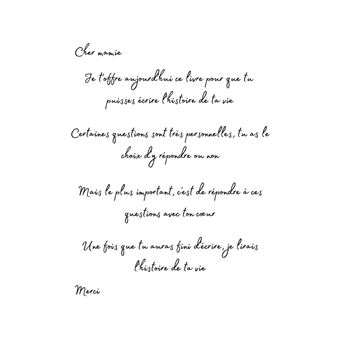 Cher mamie
Je t'offre aujourd'hui ce livre pour que tu
puisses écrire l'histoire de ta vie
Certaines questions sont très personnelles, tu as le
choix d'y répondre ou non
Mais le plus important, c'est de répondre à ces
questions avec ton cœur
Une fois que tu auras fini d'écrire, je lirais
l'histoire de ta vie
Merci